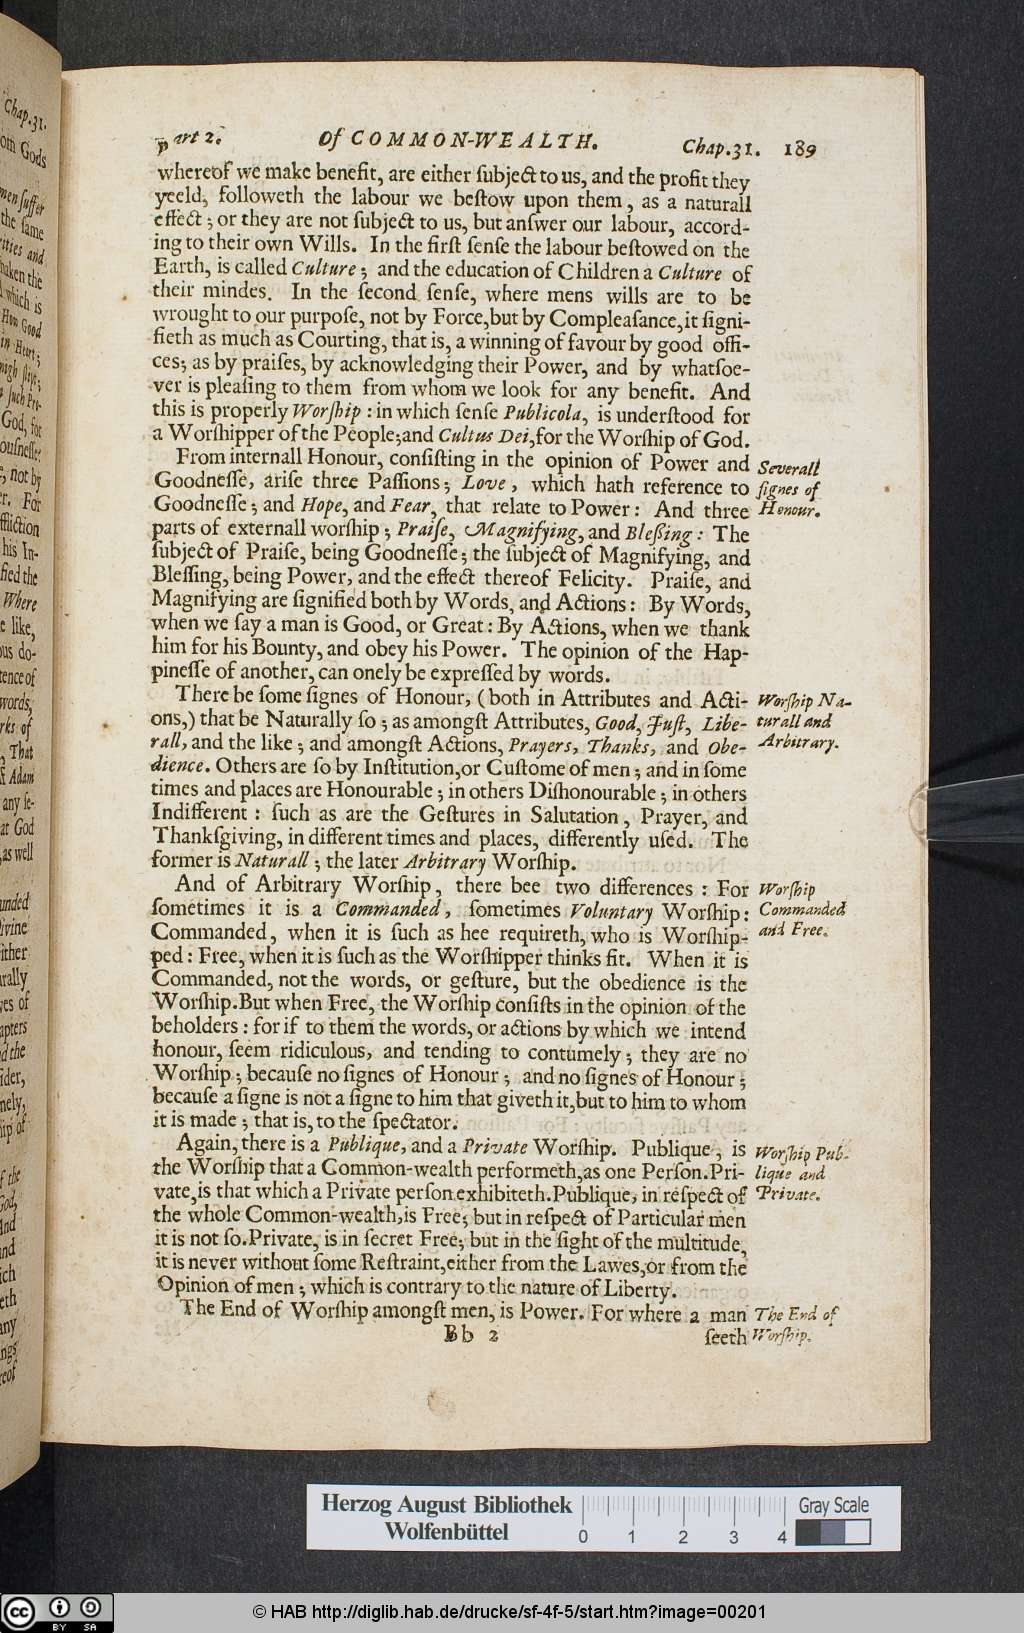 Part 2. Of COMMON-WEALTH. Chap.31. 189
whereof we make benefit, are either ſubject to us, and the profit they
yeeld, followeth the labour we beſtow upon them, as a naturall
effect; or they are not ſubject to us, but anſwer our labour, accord-
ing to their own Wills. In the firſt ſenſe the labour beſtowed on the
Earth, is called Culture; and the education of Children a Culture of
their mindes. In the ſecond ſenſe, where mens wills are to be
wrought to our purpoſe, not by Force,but by Compleaſance,it ſigni-
fieth as much as Courting, that is, a winning of favour by good offi-
ces; as by praiſes, by acknowledging their Power, and by whatſoe-
ver is pleaſing to them from whom we look for any benefit. And
this is properly Worſhip : in which ſenſe Publicola, is underſtood for
a Worſhipper of the People;and Cultus Dei,for the Worſhip of God.
From internall Honour, conſiſting in the opinion of Power and
Goodneſſe, ariſe three Paſſions; Love, which hath reference to
Goodneſſe; and Hope, and Fear, that relate to Power: And three
parts of externall worſhip; Praiſe, Magnifying, and Bleſſing: The
ſubject of Praiſe, being Goodneſſe; the ſubject of Magnifying, and
Bleſſing, being Power, and the effect thereof Felicity. Praiſe, and
Magnifying are ſignified both by Words, and Actions: By Words,
when we ſay a man is Good, or Great: By Actions, when we thank
him for his Bounty, and obey his Power. The opinion of the Hap-
pineſſe of another, can onely be expreſſed by words.
Severall
ſignes of
Honour.
There be ſome ſignes of Honour, (both in Attributes and Acti-
ons,) that be Naturally ſo; as amongſt Attributes, Good, Juſt, Libe-
rall, and the like; and amongſt Actions, Prayers, Thanks, and Obe-
dience. Others are ſo by Inſtitution,or Cuſtome of men; and in ſome
times and places are Honourable; in others Diſhonourable; in others
Indifferent : ſuch as are the Geſtures in Salutation, Prayer, and
Thankſgiving, in different times and places, differently uſed. The
former is Naturall; the later Arbitrary Worſhip.
Worſhip Na-
turall and
Arbitrary.
And of Arbitrary Worſhip, there bee two differences : For
ſometimes it is a Commanded, ſometimes Voluntary Worſhip:
Commanded, when it is ſuch as hee requireth, who is Worſhip-
ped: Free, when it is ſuch as the Worſhipper thinks fit. When it is
Commanded, not the words, or geſture, but the obedience is the
Worſhip.But when Free, the Worſhip conſiſts in the opinion of the
beholders: for if to them the words, or actions by which we intend
honour, ſeem ridiculous, and tending to contumely; they are no
Worſhip; becauſe no ſignes of Honour; and no ſignes of Honour;
becauſe a ſigne is not a ſigne to him that giveth it,but to him to whom
it is made; that is, to the ſpectator.
Worſhip
Commanded
and Free.
Again, there is a Publique, and a Private Worſhip. Publique, is
the Worſhip that a Common-wealth performeth,as one Perſon.Pri-
vate, is that which a Private perſon exhibiteth.Publique, in reſpect of
the whole Common-wealth,is Free; but in reſpect of Particular men
it is not ſo.Private, is in ſecret Free; but in the ſight of the multitude,
it is never without ſome Reſtraint,either from the Lawes,or from the
Opinion of men; which is contrary to the nature of Liberty.
Worſhip Pub-
lique and
Private.
The End of Worſhip amongſt men, is Power. For where a man
The End of
Worſhip.
Bb 2 ſeeth
Chap.31.
Herzog August Bibliothek
Wolfenbüttel
0 1 2 3 4
Gray Scale
cc BY SA
© HAB http://diglib.hab.de/drucke/sf-4f-5/start.htm?image=00201